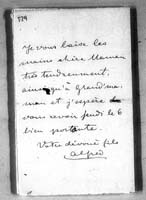 579
Je vous baise les
mains chère Maman
très tendrement,
ainsi qu'à Grand'ma-
man et j'espère
vous revoir jeudi le 6
bien portante.
Votre dévoué fils
Alfred